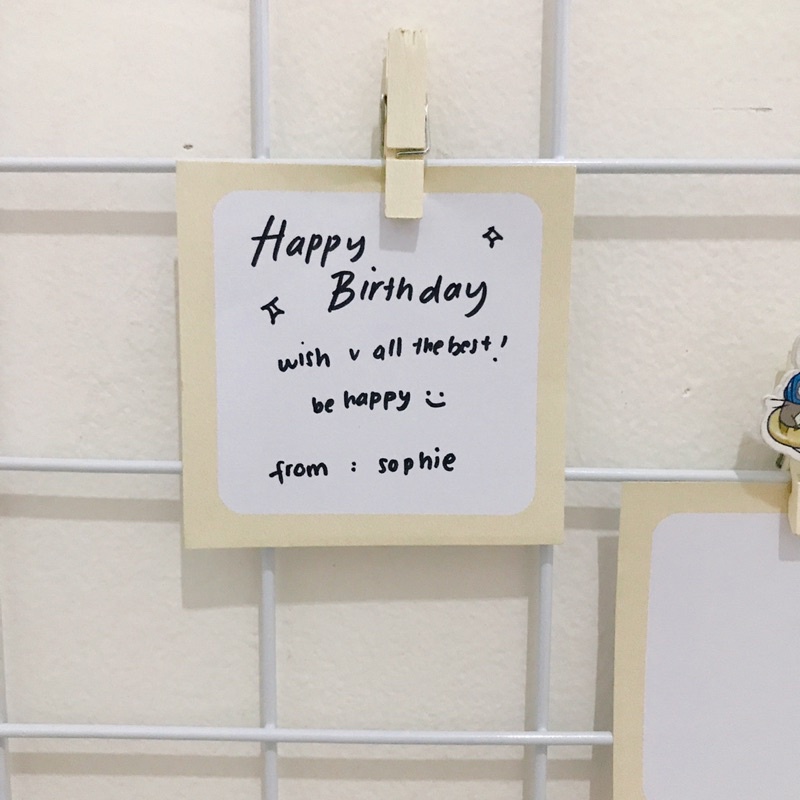 Happy
Birthday
wish v all the best!
be happy :)
from : sophie